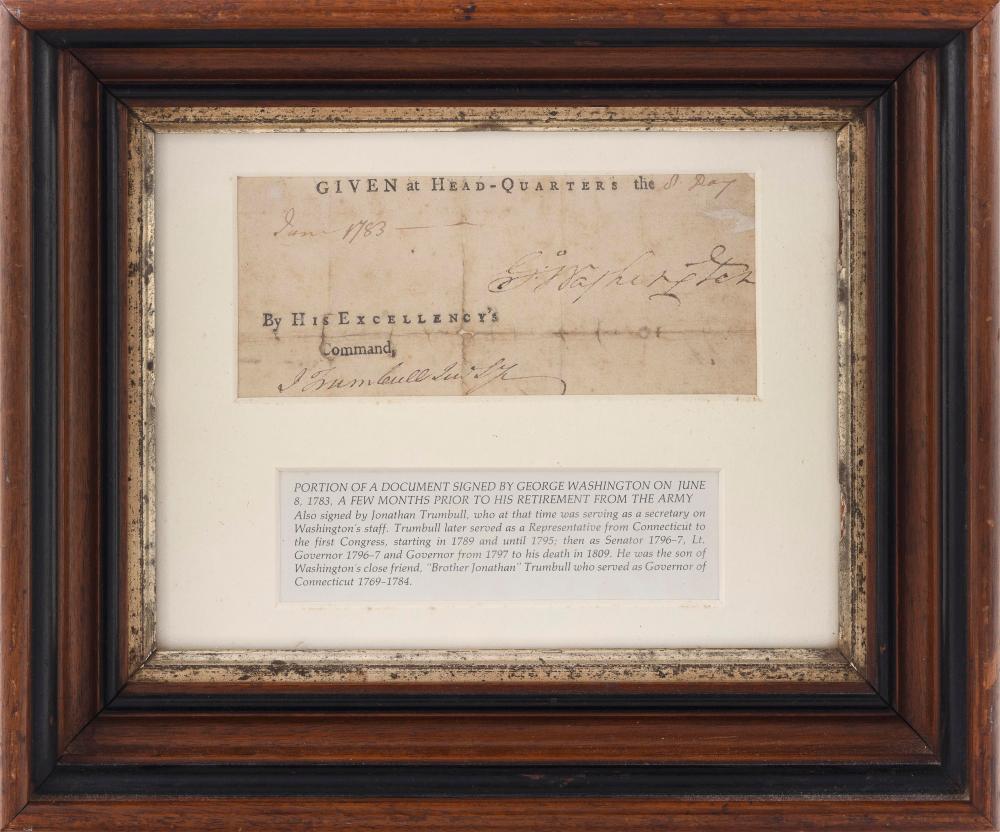 GIVEN at HEAD-QUARTERS the 8 Day
June 1783
Go Washington
By HIS EXCELLENCY's
Command,
J Trumbull Junr Secy
PORTION OF A DOCUMENT SIGNED BY GEORGE WASHINGTON ON JUNE
8, 1783, A FEW MONTHS PRIOR TO HIS RETIREMENT FROM THE ARMY
Also signed by Jonathan Trumbull, who at that time was serving as a secretary on
Washington's staff. Trumbull later served as a Representative from Connecticut to
the first Congress, starting in 1789 and until 1795; then as Senator 1796-7, Lt.
Governor 1796-7 and Governor from 1797 to his death in 1809. He was the son of
Washington's close friend, "Brother Jonathan" Trumbull who served as Governor of
Connecticut 1769-1784.